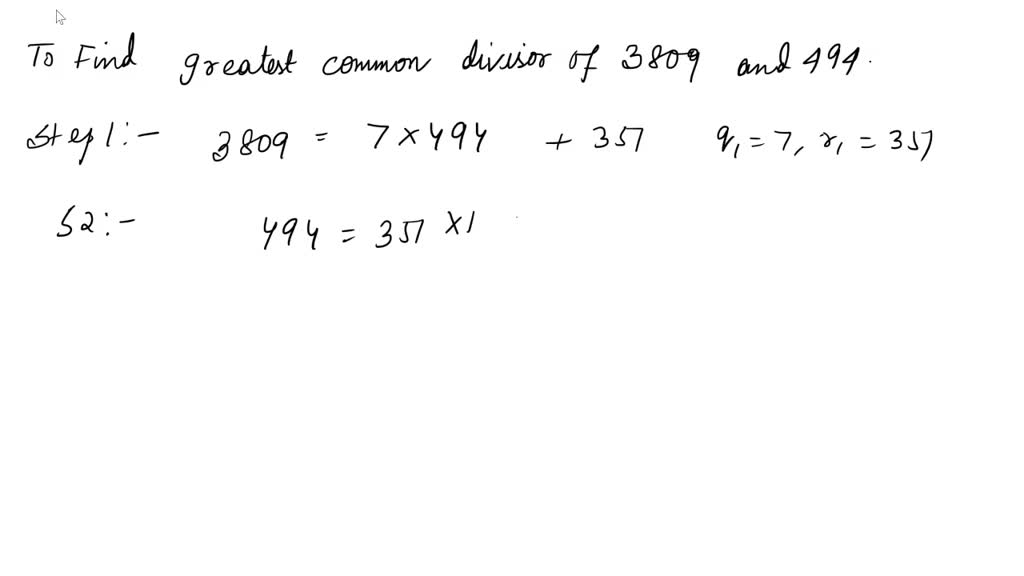 To Find greatest common divisor of 3809 and 494.
Step1:- 3809 = 7 × 494 + 357 q₁ = 7, r₁ = 357
S2:- 494 = 357 × 1